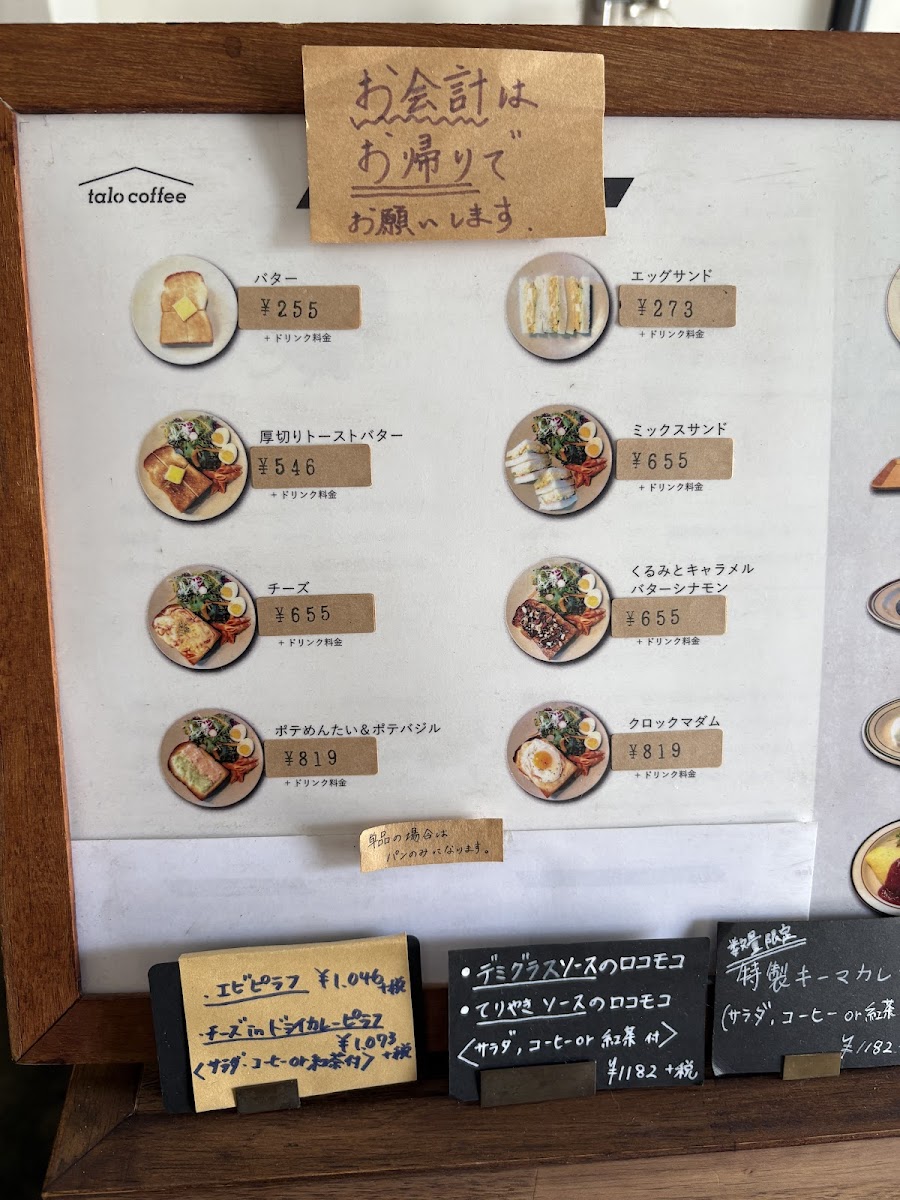 お会計は
お帰りで
お願いします.
talo coffee
バター
¥255
+ ドリンク料金
エッグサンド
¥273
+ ドリンク料金
厚切りトーストバター
¥546
+ ドリンク料金
ミックスサンド
¥655
+ ドリンク料金
チーズ
¥655
+ ドリンク料金
くるみとキャラメル
バターシナモン
¥655
+ ドリンク料金
ポテめんたい&ポテバジル
¥819
+ ドリンク料金
クロックマダム
¥819
+ ドリンク料金
単品の場合は
パンのみになります。
・エビピラフ ¥1.046+税
・チーズinドライカレーピラフ
¥1.093
+税
〈サラダ・コーヒーor紅茶付〉
• デミグラスソースのロコモコ
• てりやきソースのロコモコ
〈サラダ, コーヒーor 紅茶 付〉
¥1182 +税
数量限定
特製キーマカレ
(サラダ, コーヒー or 紅茶
¥1182